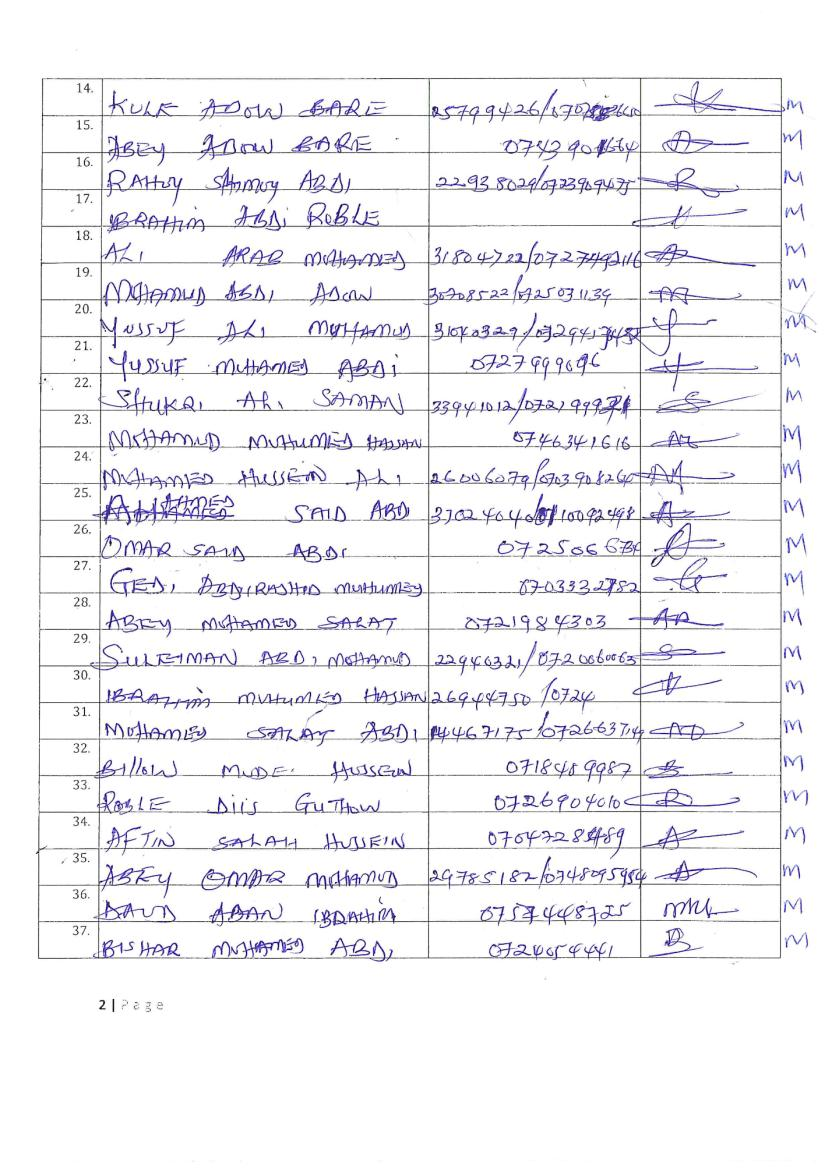 14. KULE ADOW BARE 25799426/ M
15. ABEY ADOW BARE M
16. RAHOY SHMOY ABDI 22938029/0723909475 M
17. IBRAHIM ABDI ROBLE M
18. ALI ARAB MOHAMED 31804722/0727492116 M
19. MOHAMUD ABDI ADOW 30708522/0725031139 M
20. YUSSUF ALI MUHAMUD M
21. YUSSUF MUHAMED ABDI 0727999096 M
22. SHUKRI ALI SAMAN M
23. MOHAMUD MUHUMED HASSAN 0746341616 M
24. MUHAMED HUSSEIN ALI 26006079/0703908260 M
25. AHMED SAID ABDI M
26. OMAR SAID ABDI M
27. GEDI ABDIRASHID MUHUMED M
28. ABEY MOHAMED SALAT 0721984303 M
29. SULEIMAN ABDI MOHAMUD 22946321/0720060063 M
30. IBRAHIM MUHUMED HASSAN 26944750/0724 M
31. MOHAMED SALAT ABDI M
32. BILLOW MUDEI HUSSEIN 0718489987 M
33. ROBLE DIIS GUTHOW 0726904010 M
34. AFTIN SALAH HUSSEIN M
35. ABEY OMAR MOHAMUD 29785182/0748095984 M
36. DAUD ABAN IBRAHIM M
37. BISHAR MUHAMED ABDI 0724054441 B M
2 | Page